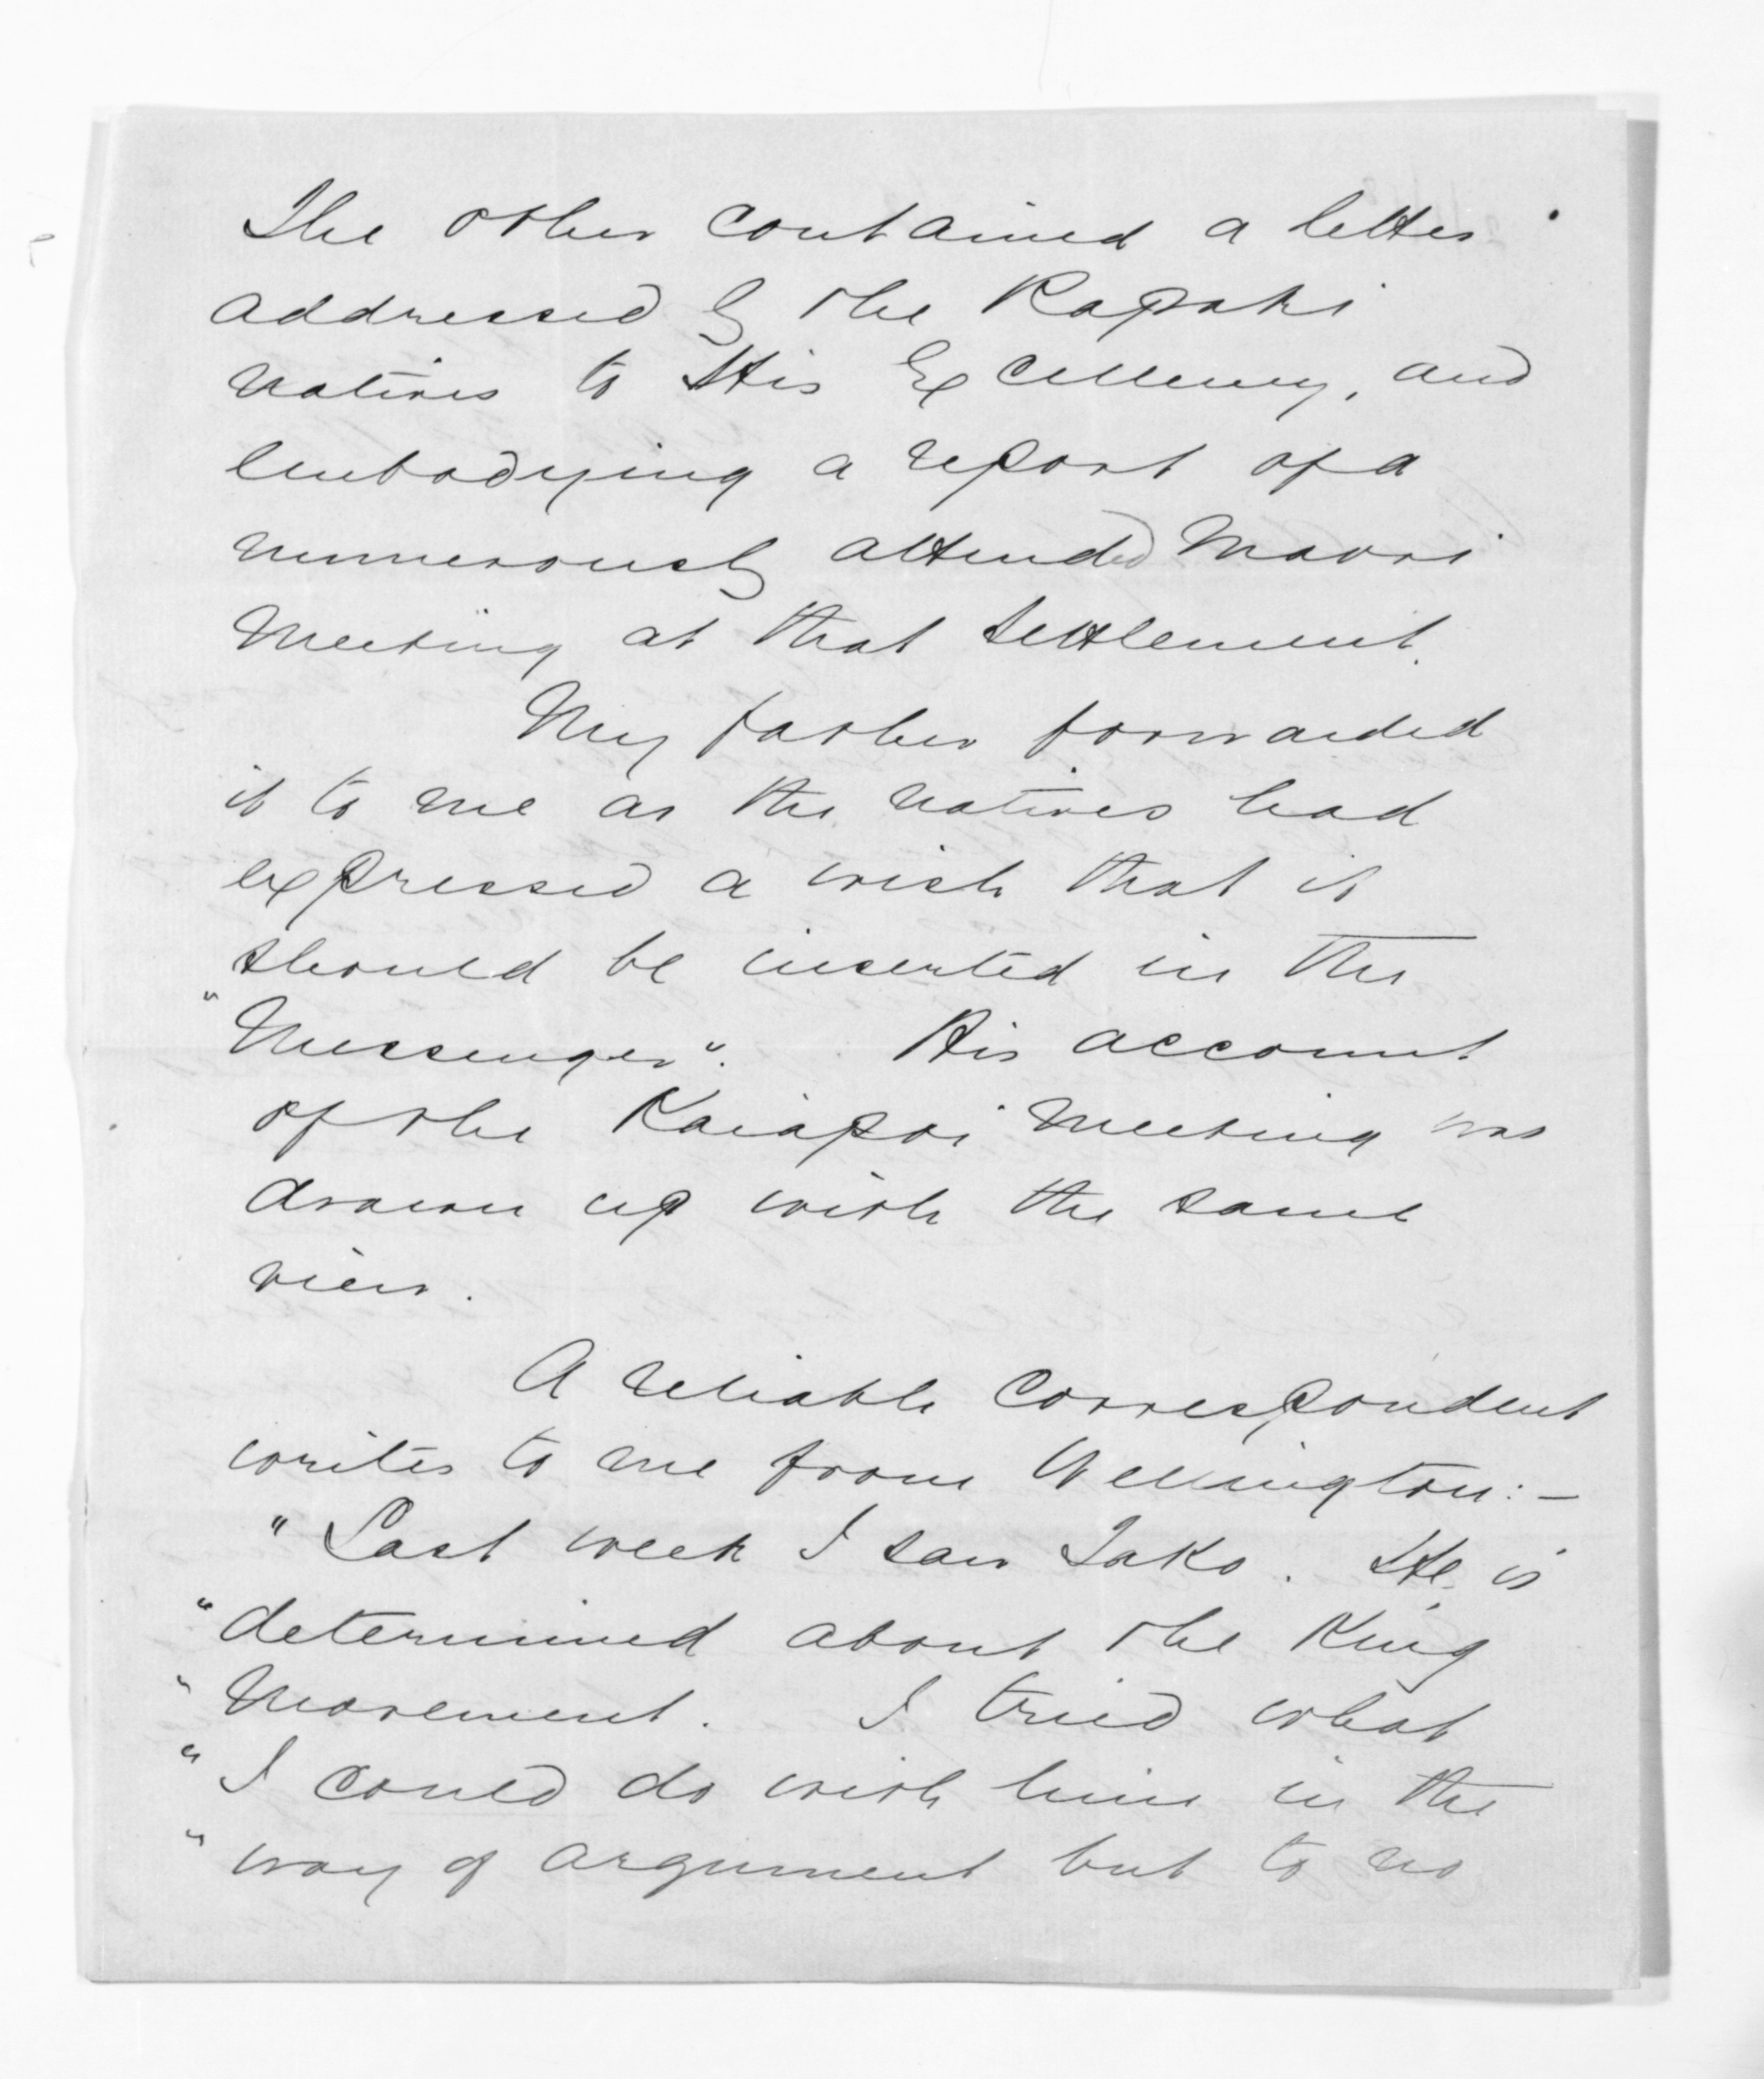 The other contained a letter
addressed by the Rapaki
natives to His Excellency, and
embodying a report of a
numerously attended Maori
Meeting at that Settlement.
My father forwarded
it to me as the natives had
expressed a wish that it
should be inserted in the
"Messenger". His account
of the Kaiapoi Meeting was
drawn up with the same
view.
A reliable correspondent
writes to me from Wellington:—
"Last week I saw Tako. He is
"determined about the King
"Movement. I tried what
"I could do with him in the
"way of argument but to no